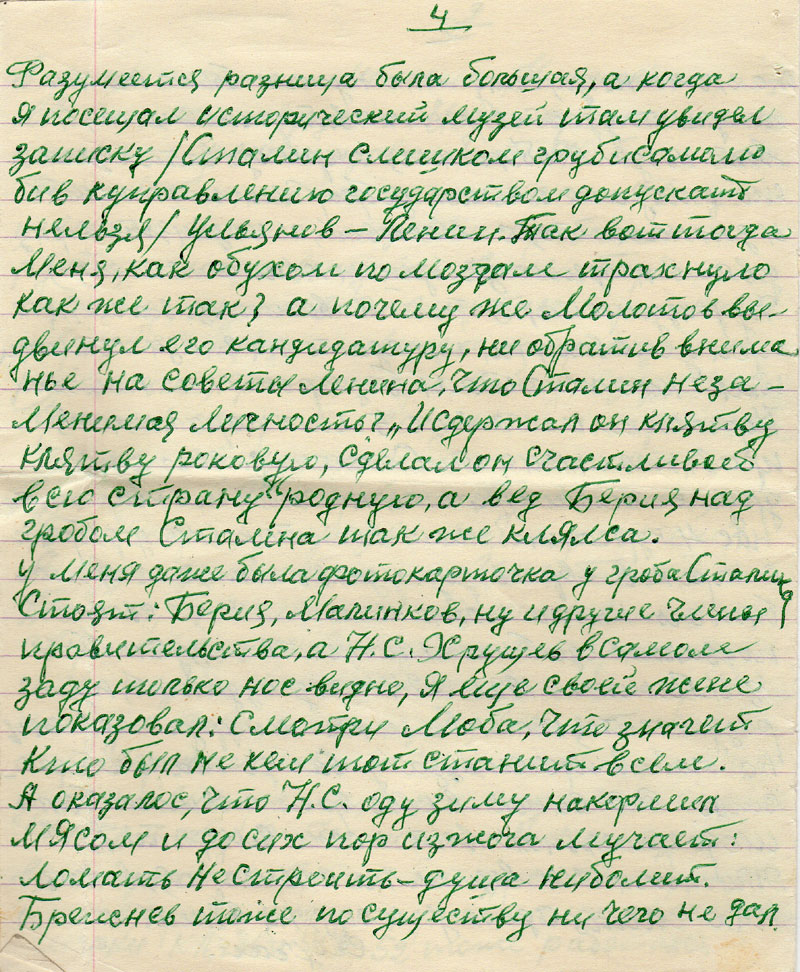 4
Разумеется разница была большая, а когда
я посещал исторический музей там увидел
записку /Сталин слишком груб и самолю
бив к управлению государством допускать
нельзя/ Ульянов – Ленин. Так вот тогда
меня, как обухом по мозгам трахнуло
как же так? а почему же Молотов вы-
двинул его кандидатуру, ни обратив внима
нье на советы Ленина, что Сталин неза-
менимая личность? „И сдержал он клятву
клятву роковую, сделал он счастливой
всю страну родную, а вед Берия над
гробом Сталина так же клялса.
У меня даже была фотокарточка у гроба Сталина
стоят: Берия, Малинков, ну и другие члены
правительства, а Н.С. Хрущев в самом
заду только нос видно, я еще своей жене
показовал: смотри Люба, что значит
кто был не кем тот станит всем.
А оказалос, что Н.С. оду зиму накормил
мясом и до сих пор изжога мучает:
ломать не строить – душа ниболит.
Брежнев тоже по существу ни чего не дал.